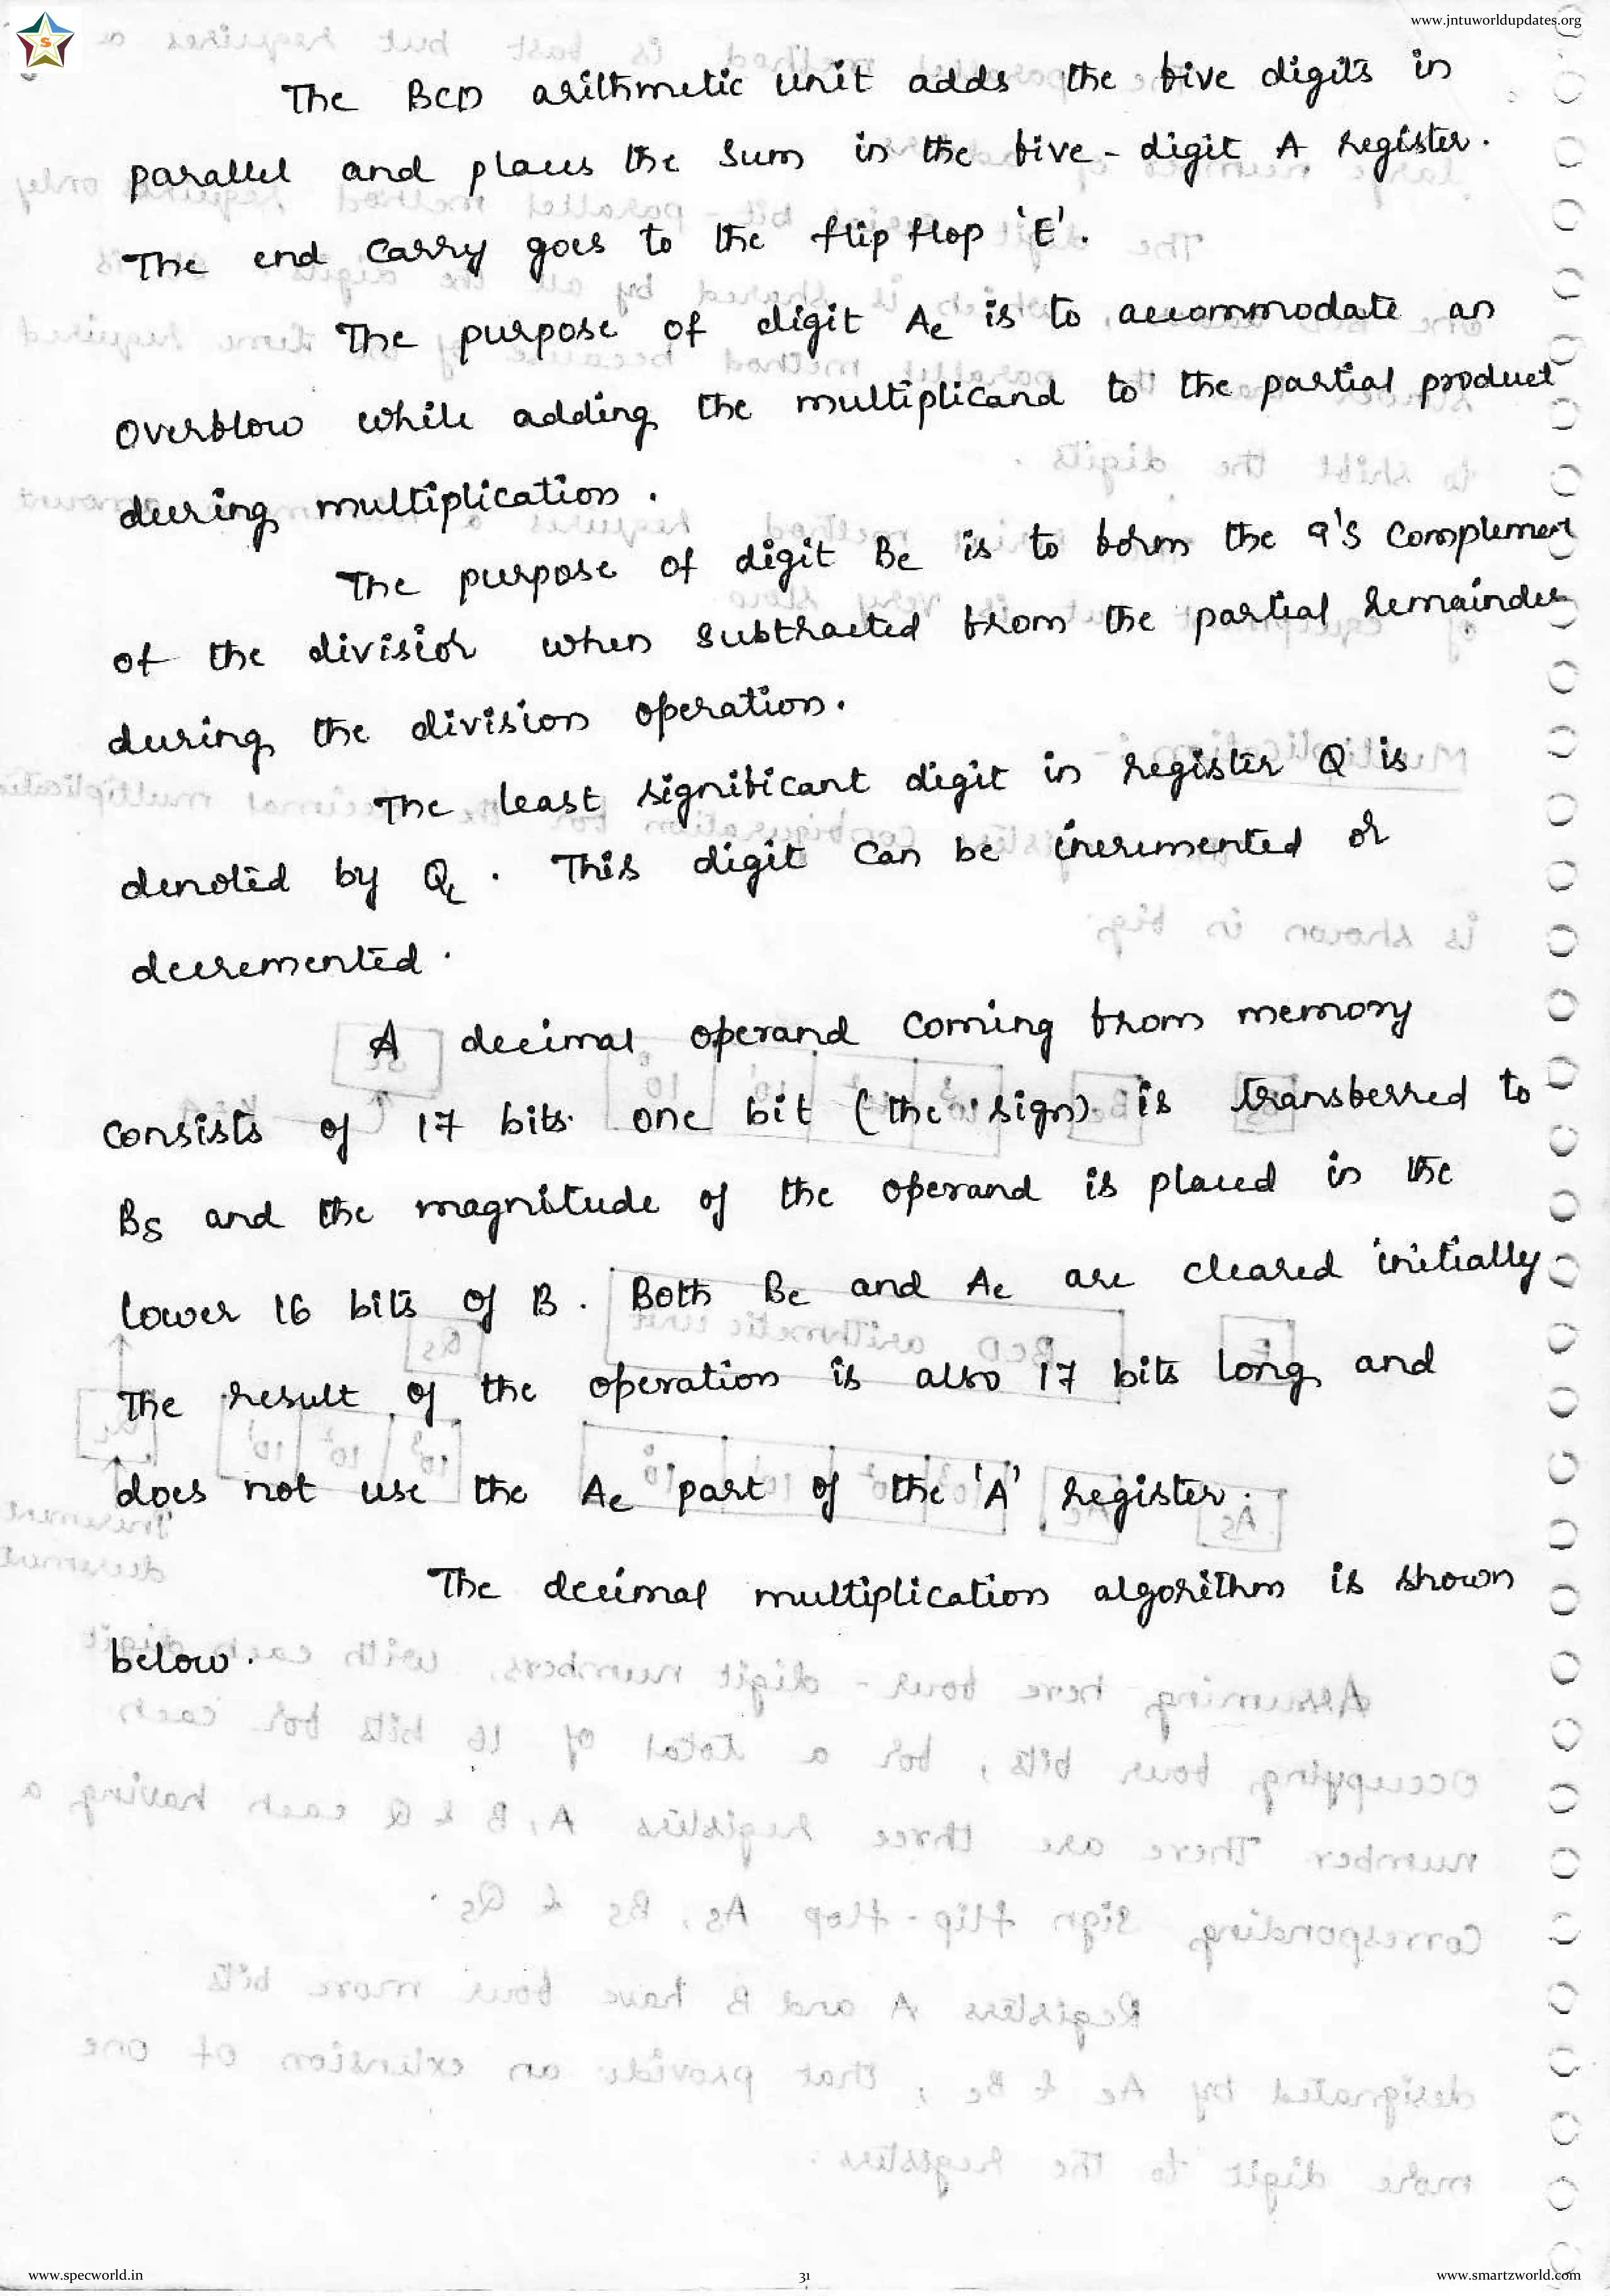 www.jntuworldupdates.org
S
The BCD arithmetic unit adds the five digits in
parallel and places the sum in the five-digit A register.
The end carry goes to the flip flop 'E'.
The purpose of digit Ae is to accommodate an
overflow while adding the multiplicand to the partial product
during multiplication.
The purpose of digit Be is to form the 9's complement
of the divisior when subtracted from the partial remainder
during the division operation.
The least significant digit in register Q is
denoted by QL. This digit can be incremented or
decremented.
A decimal operand coming from memory
consists of 17 bits. one bit (the sign) is transferred to
BS and the magnitude of the operand is placed in the
lower 16 bits of B. Both Be and Ae are cleared initially
The result of the operation is also 17 bits long and
does not use the Ae part of the 'A' register.
The decimal multiplication algorithm is shown
below.
www.specworld.in
31
www.smartzworld.com